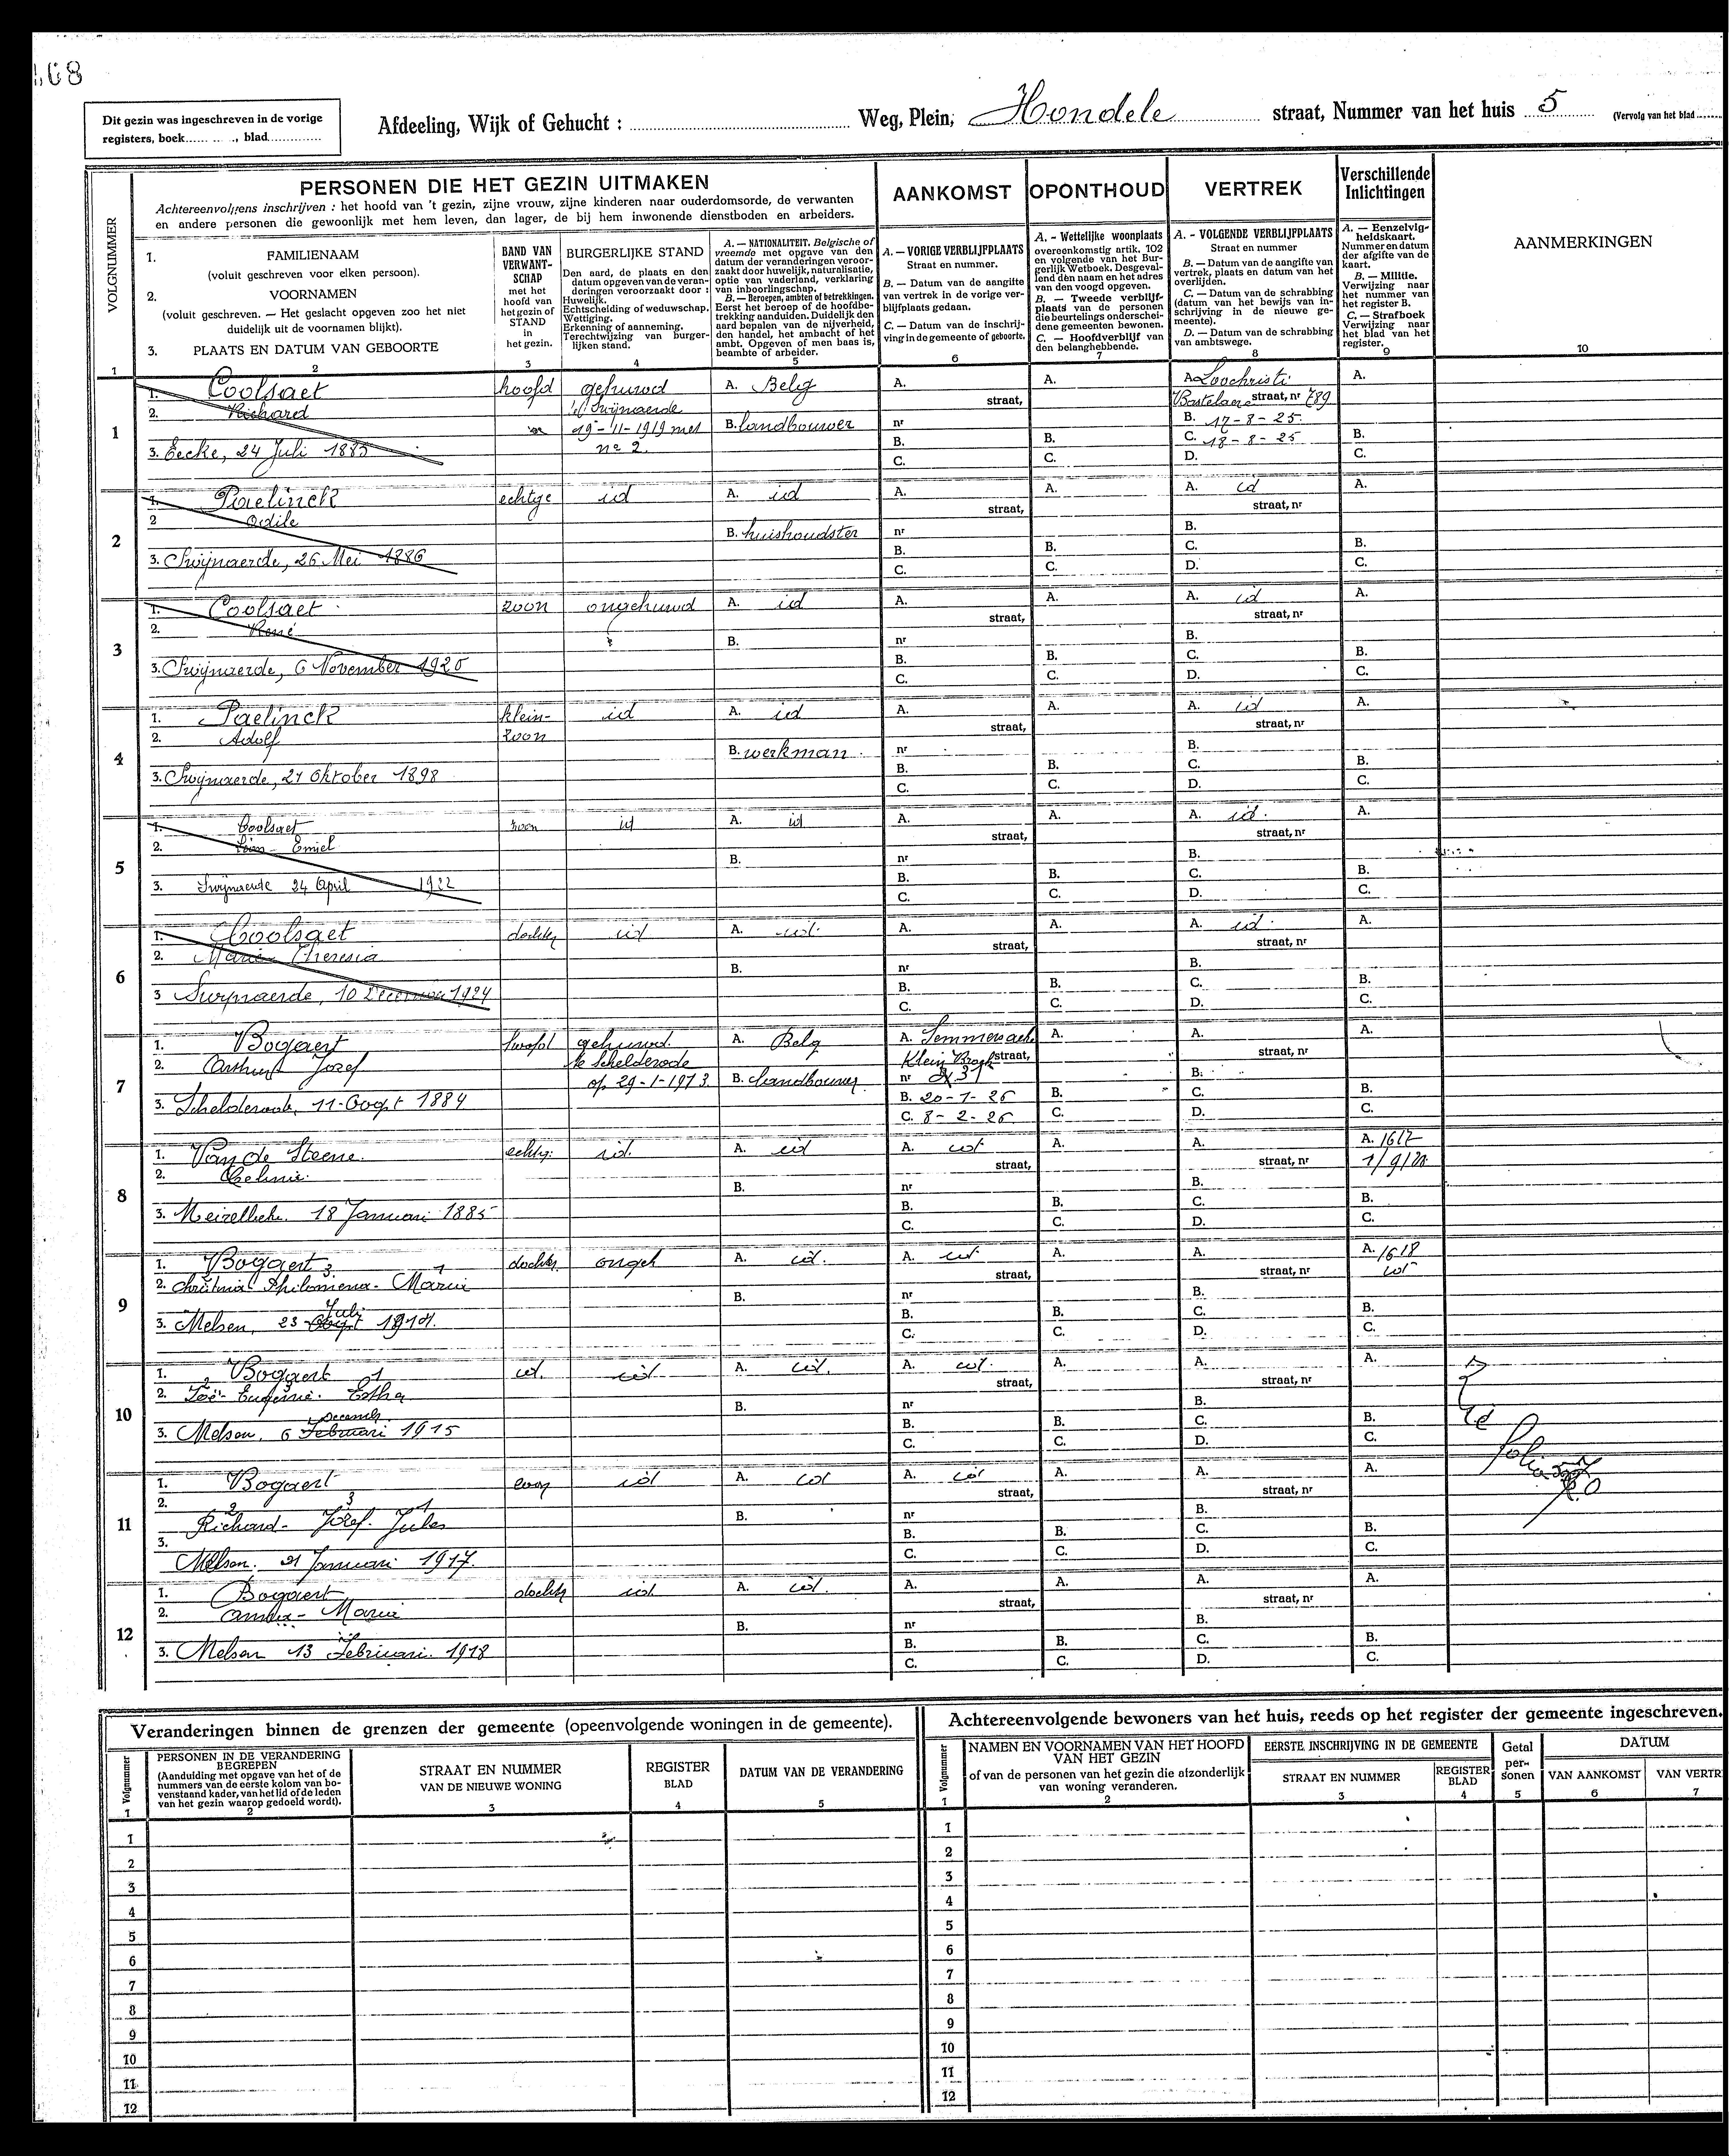 168
Dit gezin was ingeschreven in de vorige
registers, boek...... .. ., blad..............
Afdeeling, Wijk of Gehucht : ........ Weg, Plein, Hondele straat, Nummer van het huis 5 (Vervolg van het blad .......
VOLGNUMMER
PERSONEN DIE HET GEZIN UITMAKEN
Achtereenvolgens inschrijven : het hoofd van 't gezin, zijne vrouw, zijne kinderen naar ouderdomsorde, de verwanten
en andere personen die gewoonlijk met hem leven, dan lager, de bij hem inwonende dienstboden en arbeiders.
1. FAMILIENAAM
(voluit geschreven voor elken persoon).
2. VOORNAMEN
(voluit geschreven. — Het geslacht opgeven zoo het niet
duidelijk uit de voornamen blijkt).
3. PLAATS EN DATUM VAN GEBOORTE
BAND VAN
VERWANT-
SCHAP
met het
hoofd van
het gezin of
STAND
in
het gezin.
BURGERLIJKE STAND
Den aard, de plaats en den
datum opgeven van de veran-
deringen veroorzaakt door :
Huwelijk.
Echtscheiding of weduwschap.
Wettiging.
Erkenning of aanneming.
Terechtwijzing van burger-
lijken stand.
A. — NATIONALITEIT. Belgische of
vreemde met opgave van den
datum der veranderingen veroor-
zaakt door huwelijk, naturalisatie,
optie van vaderland, verklaring
van inboorlingschap.
B. — Beroepen, ambten of betrekkingen.
Eerst het beroep of de hoofdbe-
trekking aanduiden. Duidelijk den
aard bepalen van de nijverheid,
den handel, het ambacht of het
ambt. Opgeven of men baas is,
beambte of arbeider.
AANKOMST
A. — VORIGE VERBLIJFPLAATS
Straat en nummer.
B. — Datum van de aangifte
van vertrek in de vorige ver-
blijfplaats gedaan.
C. — Datum van de inschrij-
ving in de gemeente of geboorte.
OPONTHOUD
A. - Wettelijke woonplaats
overeenkomstig artik. 102
en volgende van het Bur-
gerlijk Wetboek. Desgeval-
lend den naam en het adres
van den voogd opgeven.
B. — Tweede verblijf-
plaats van de personen
die beurtelings onderschei-
dene gemeenten bewonen.
C. — Hoofdverblijf van
den belanghebbende.
VERTREK
A. - VOLGENDE VERBLIJFPLAATS
Straat en nummer
B. — Datum van de aangifte van
vertrek, plaats en datum van het
overlijden.
C. — Datum van de schrabbing
(datum van het bewijs van in-
schrijving in de nieuwe ge-
meente).
D. — Datum van de schrabbing
van ambtswege.
Verschillende
Inlichtingen
A. — Eenzelvig-
heidskaart.
Nummer en datum
der afgifte van de
kaart.
B. — Militie.
Verwijzing naar
het nummer van
het register B.
C. — Strafboek
Verwijzing naar
het blad van het
register.
AANMERKINGEN
1 2 3 4 5 6 7 8 9 10
1
1. Coolsaet hoofd gehuwd A. Belg A. A. A. Loochristi A.
2. Richard te Swijnaerde straat, Bostelaere straat, nr 789
19-11-1919 met B. landbouwer nr B. 17-8-25
3. Eecke, 24 Juli 1885 no 2. B. B. C. 18-8-25 B.
C. C. D. C.
2
1. Paelinck echtge id A. id A. A. A. id A.
2 Odile straat, straat, nr
B. huishoudster nr B.
3. Swijnaerde, 26 Mei 1886 B. B. C. B.
C. C. D. C.
3
1. Coolsaet zoon ongehuwd A. id A. A. A. id A.
2. René straat, straat, nr
B. nr B.
3. Swijnaerde, 6 November 1920 B. B. C. B.
C. C. D. C.
4
1. Paelinck klein- id A. id A. A. A. id A.
2. Adolf zoon straat, straat, nr
B. werkman nr B.
3. Swijnaerde, 21 Oktober 1898 B. B. C. B.
C. C. D. C.
5
1. Coolsaet zoon id A. id A. A. A. id. A.
2. Léon - Emiel straat, straat, nr
B. nr B.
3. Swijnaerde 24 April 1922 B. B. C. B.
C. C. D. C.
6
1. Coolsaet dochter id A. id. A. A. A. id. A.
2. Maria Theresia straat, straat, nr
B. nr B.
3 Swijnaerde, 10 December 1924 B. B. C. B.
C. C. D. C.
7
1. Bogaert hoofd gehuwd. A. Belg A. Semmersake A. A. A.
2. Arthur Jozef te Schelderode Klein straat, straat, nr
op 29-1-1913. B. landbouwer nr 31 B.
3. Schelderode, 11 Oogst 1884 B. 20-1-26 B. C. B.
C. 8-2-26 C. D. C.
8
1. Van de Steene. echtg. id. A. id A. id A. A. A. 1617
2. Celinie. straat, straat, nr 1/9/20
B. nr B.
3. Meirelbeke. 18 Januari 1885 B. B. C. B.
C. C. D. C.
9
1. Bogaert dochter ongeh A. id. A. id. A. A. A. 1618
2. Christina Philomena - Maria straat, straat, nr id
B. nr B.
3. Melsen, 23 Oogst Juli 1914. B. B. C. B.
C. C. D. C.
10
1. Bogaert id. id. A. id. A. id. A. A. A.
2. Zoë - Eugenie. Estha straat, straat, nr
B. nr B.
3. Melsen. 6 Februari Decemb. 1915 B. B. C. B.
C. C. D. C.
11
1. Bogaert zoon id A. id A. id A. A. A.
2. Richard - Jozef. Jules straat, straat, nr
B. nr B.
3. Melsen. 21 Januari 1917. B. B. C. B.
C. C. D. C.
12
1. Bogaert dochter id A. id. A. A. A. A.
2. Anna - Maria straat, straat, nr
B. nr B.
3. Melsen 13 Februari. 1918 B. B. C. B.
C. C. D. C.
Veranderingen binnen de grenzen der gemeente (opeenvolgende woningen in de gemeente).
Volgnummer
PERSONEN IN DE VERANDERING
BEGREPEN
(Aanduiding met opgave van het of de
nummers van de eerste kolom van bo-
venstaand kader, van het lid of de leden
van het gezin waarop gedoeld wordt).
STRAAT EN NUMMER
VAN DE NIEUWE WONING
REGISTER
BLAD
DATUM VAN DE VERANDERING
1 2 3 4 5
1
2
3
4
5
6
7
8
9
10
11
12
Achtereenvolgende bewoners van het huis, reeds op het register der gemeente ingeschreven.
Volgnummer
NAMEN EN VOORNAMEN VAN HET HOOFD
VAN HET GEZIN
of van de personen van het gezin die afzonderlijk
van woning veranderen.
EERSTE INSCHRIJVING IN DE GEMEENTE
STRAAT EN NUMMER
REGISTER
BLAD
Getal
per-
sonen
DATUM
VAN AANKOMST
VAN VERTR
1 2 3 4 5 6 7
1
2
3
4
5
6
7
8
9
10
11
12